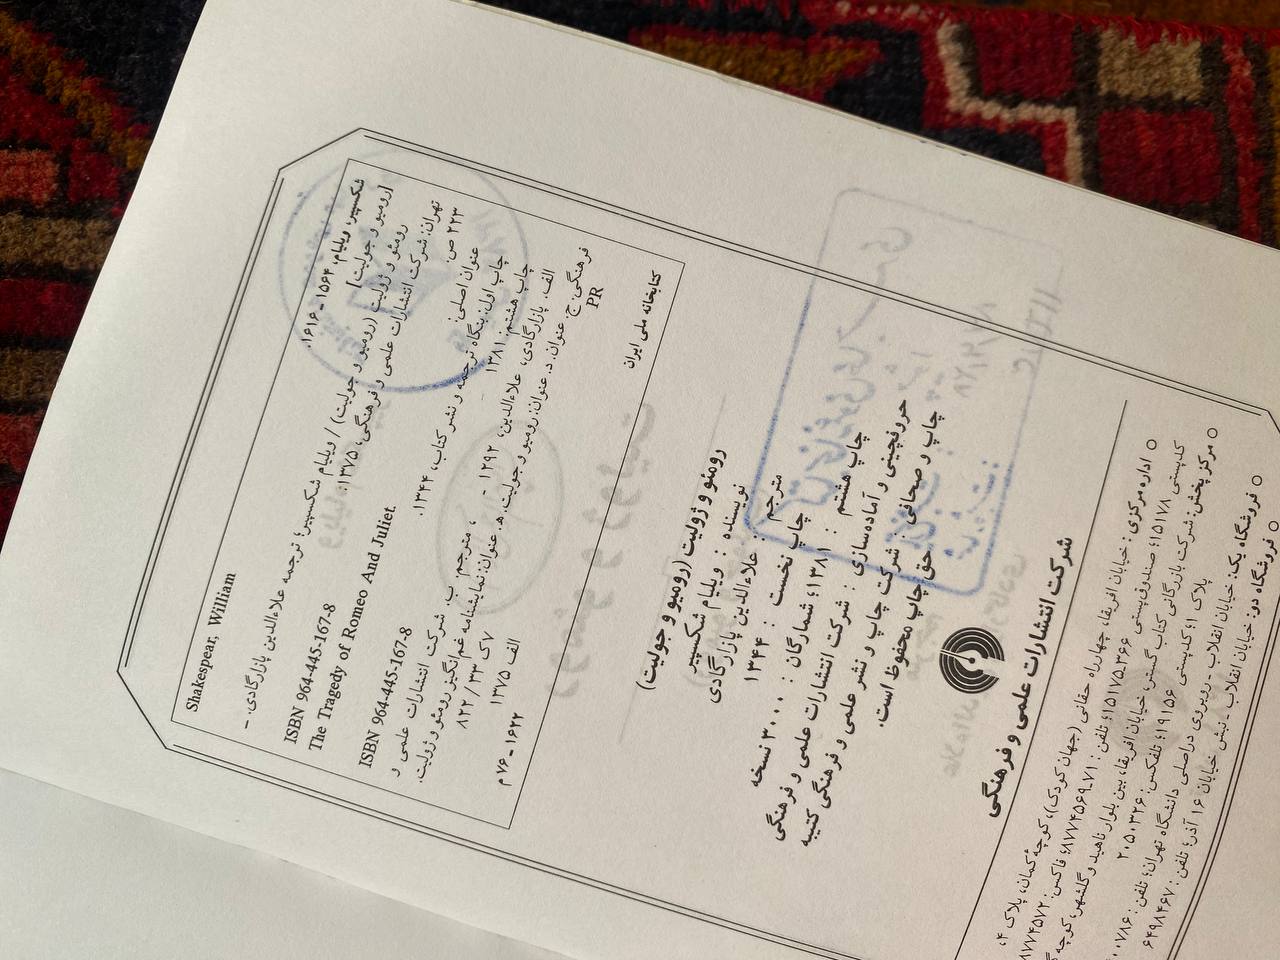 شکسپیر، ویلیام، ۱۵۶۴ ـ ۱۶۱۶.
Shakespear, William
[رومیو و جولیت]
رومئو و ژولیت (رومیو و جولیت) / ویلیام شکسپیر؛ ترجمه علاءالدین پازارگادی. ـ
تهران: شرکت انتشارات علمی و فرهنگی، ۱۳۷۵.
۲۲۳ ص.
ISBN 964-445-167-8
عنوان اصلی:
The Tragedy of Romeo And Juliet
چاپ اول: بنگاه ترجمه و نشر کتاب، ۱۳۴۴.
چاپ هشتم: ۱۳۸۱
ISBN 964-445-167-8
الف. پازارگادی، علاءالدین، ۱۲۹۲ ـ ، مترجم. ب. شرکت انتشارات علمی و
فرهنگی. ج. عنوان. د. عنوان: رومیو و جولیت. ه. عنوان: نمایشنامه غم‌انگیز رومئو و ژولیت.
PR
۷ک ۳۳ / ۸۲۲
الف ۱۳۷۵
کتابخانه ملی ایران
۱۶۲۲ ـ ۷۶ م
رومئو و ژولیت (رومیو و جولیت)
نویسنده : ویلیام شکسپیر
مترجم : علاءالدین پازارگادی
چاپ نخست : ۱۳۴۴
چاپ هشتم : ۱۳۸۱؛ شمارگان : ۳۰۰۰ نسخه
حروفچینی و آماده‌سازی : شرکت انتشارات علمی و فرهنگی
چاپ و صحافی : شرکت چاپ و نشر علمی و فرهنگی کتیبه
حق چاپ محفوظ است.
شرکت انتشارات علمی و فرهنگی
○ اداره مرکزی : خیابان افریقا، چهارراه حقانی (جهان کودک)، کوچه کمان، پلاک ۴،
کدپستی ۱۵۱۷۸؛ صندوق‌پستی ۳۶۶ـ۱۵۱۷۵؛ تلفن : ۷۱ـ۸۷۷۴۵۶۹؛ فاکس: ۸۷۷۴۵۷۲
○ مرکز پخش: شرکت بازرگانی کتاب گستر، خیابان افریقا، بین بلوار ناهید و گلشهر، کوچه
پلاک ۱؛ کدپستی ۱۹۱۵۶؛ تلفکس: ۲۰۵۰۳۲۶
○ فروشگاه یک: خیابان انقلاب ـ روبروی دراصلی دانشگاه تهران؛ تلفن :
○ فروشگاه دو: خیابان انقلاب ـ نبش خیابان ۱۶ آذر؛ تلفن : ۶۴۹۸۴۶۷